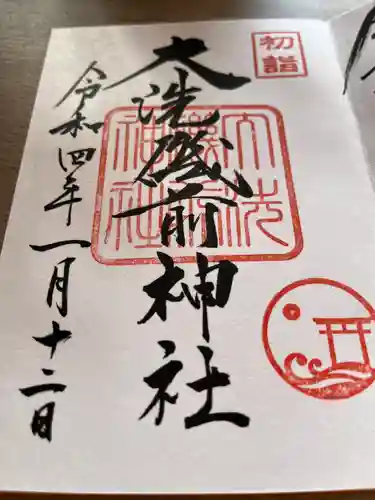 初詣
大洗磯前神社
令和四年一月十二日
大洗
磯前
神社